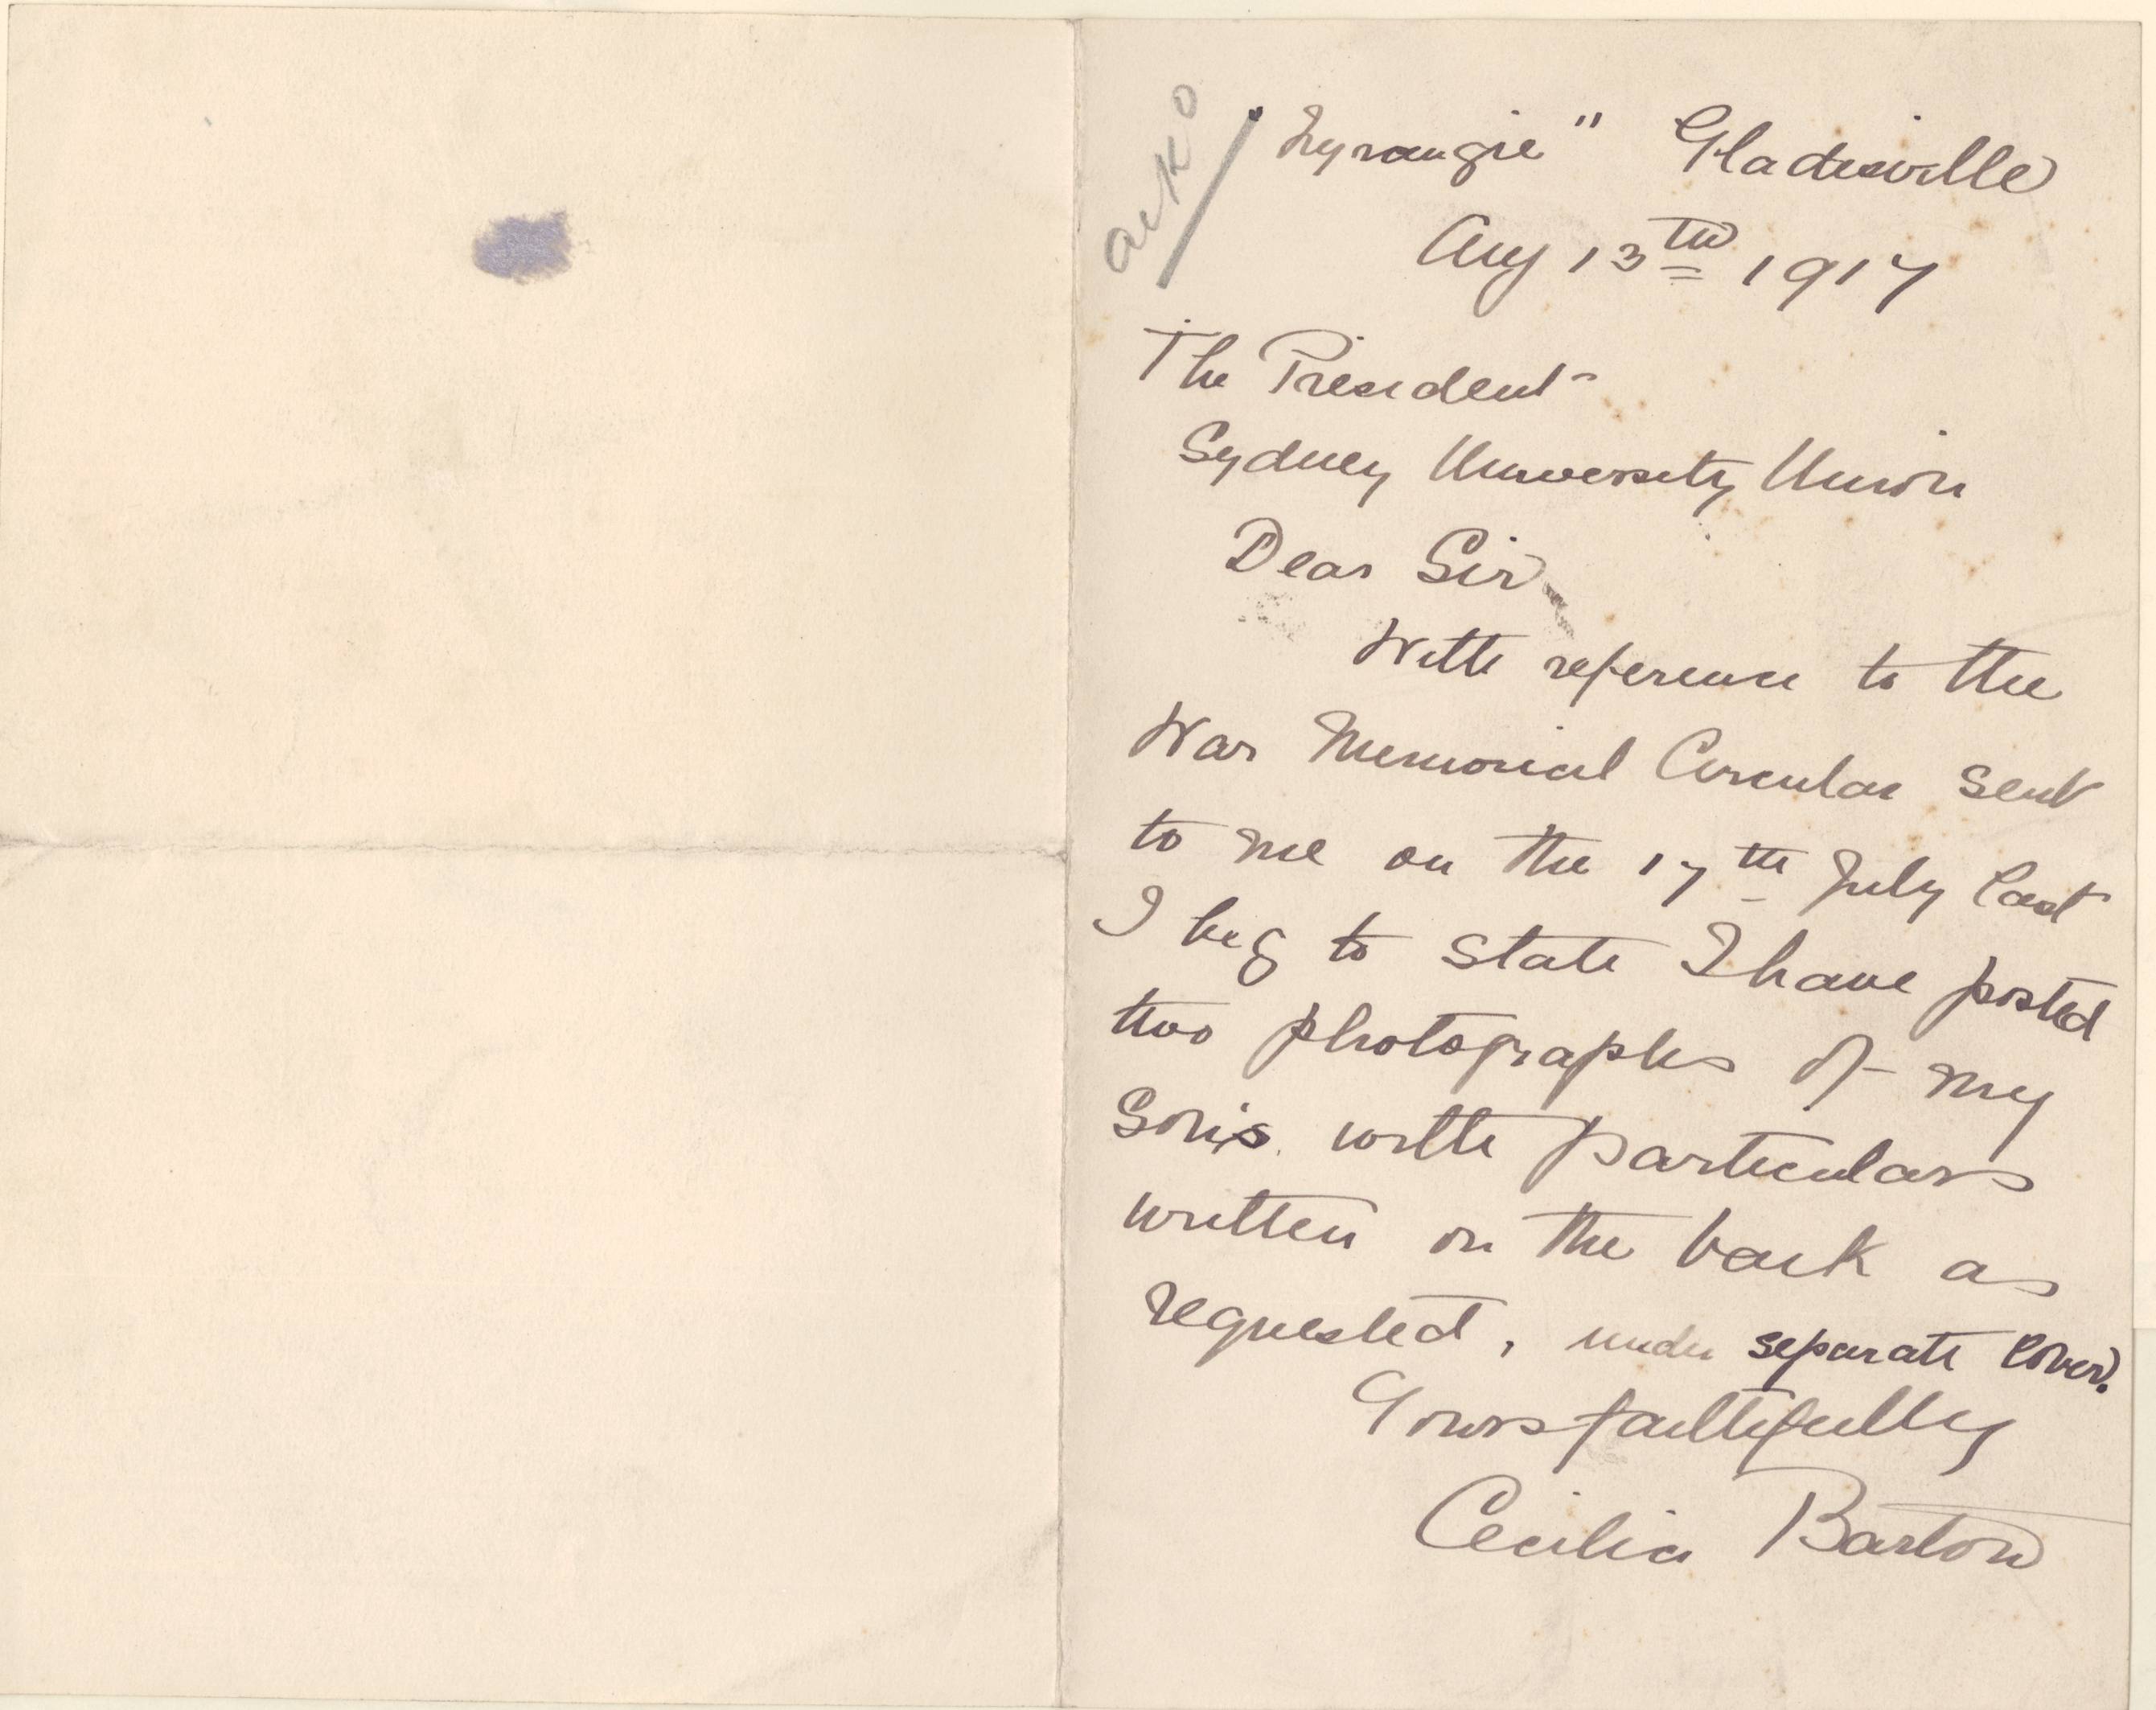 ackd
" Gladesville
Aug 13th 1917
The President
Sydney University Union
Dear Sir
With reference to the
War Memorial Circular sent
to me on the 17th July last
I beg to state I have posted
two photographs of my
Son's with particulars
written on the back as
requested, under separate cover.
Yours faithfully
Cecilia Barton